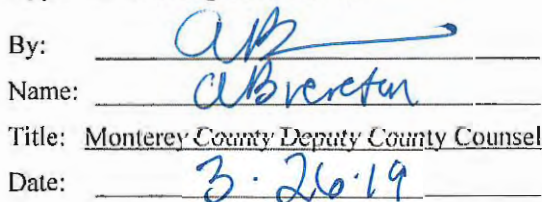 By: AB
Name: ABrereton
Title: Monterey County Deputy County Counsel
Date: 3.26.19